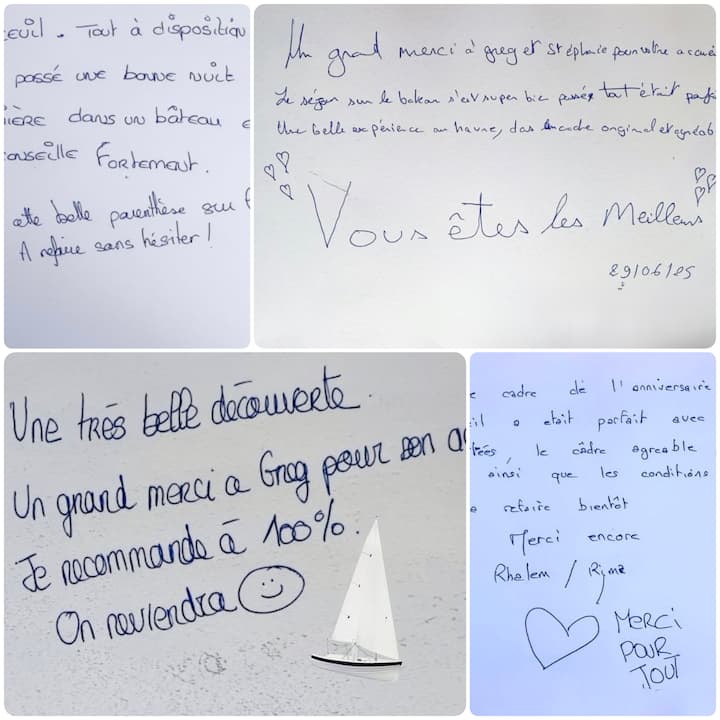 Tout à disposition
passé une bonne nuit
dans un bâteau
Fortement.
belle parenthèse sur
A refaire sans hésiter !
Un grand merci à greg et Stéphanie pour votre
Le séjour sur le bateau s'est super bien passé, tout était
Une belle expérience au havre, original et
Vous êtes les Meilleurs
29/06/25
Une très belle découverte.
Un grand merci a Greg pour son
Je recommande à 100%.
On reviendra
cadre de l'anniversaire
etait parfait avec
le câdre agreable
ainsi que les conditions
refaire bientôt
Merci encore
Rhalem / Ryma
MERCI
POUR
TOUT